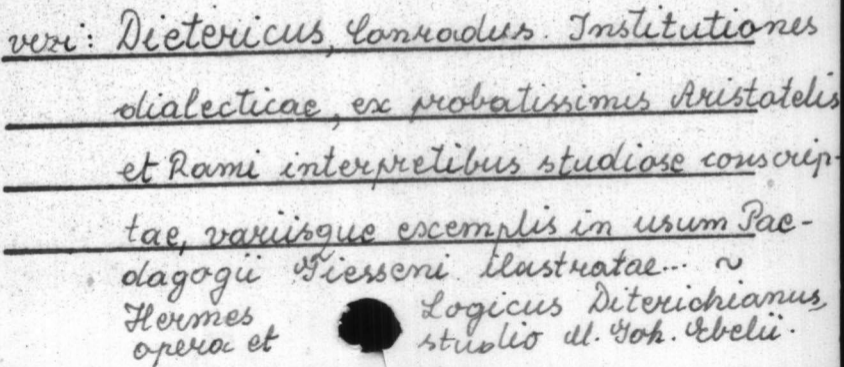 vezi: Dietericus, Conradus. Institutiones
dialecticae, ex probatissimis Aristotelis
et Rami interpretibus studiose conscrip-
tae, variisque exemplis in usum Pae-
dagogii Giesseni ilustratae... ~
Hermes Logicus Diterichianus,
opera et studio M. Joh. Ebelii.